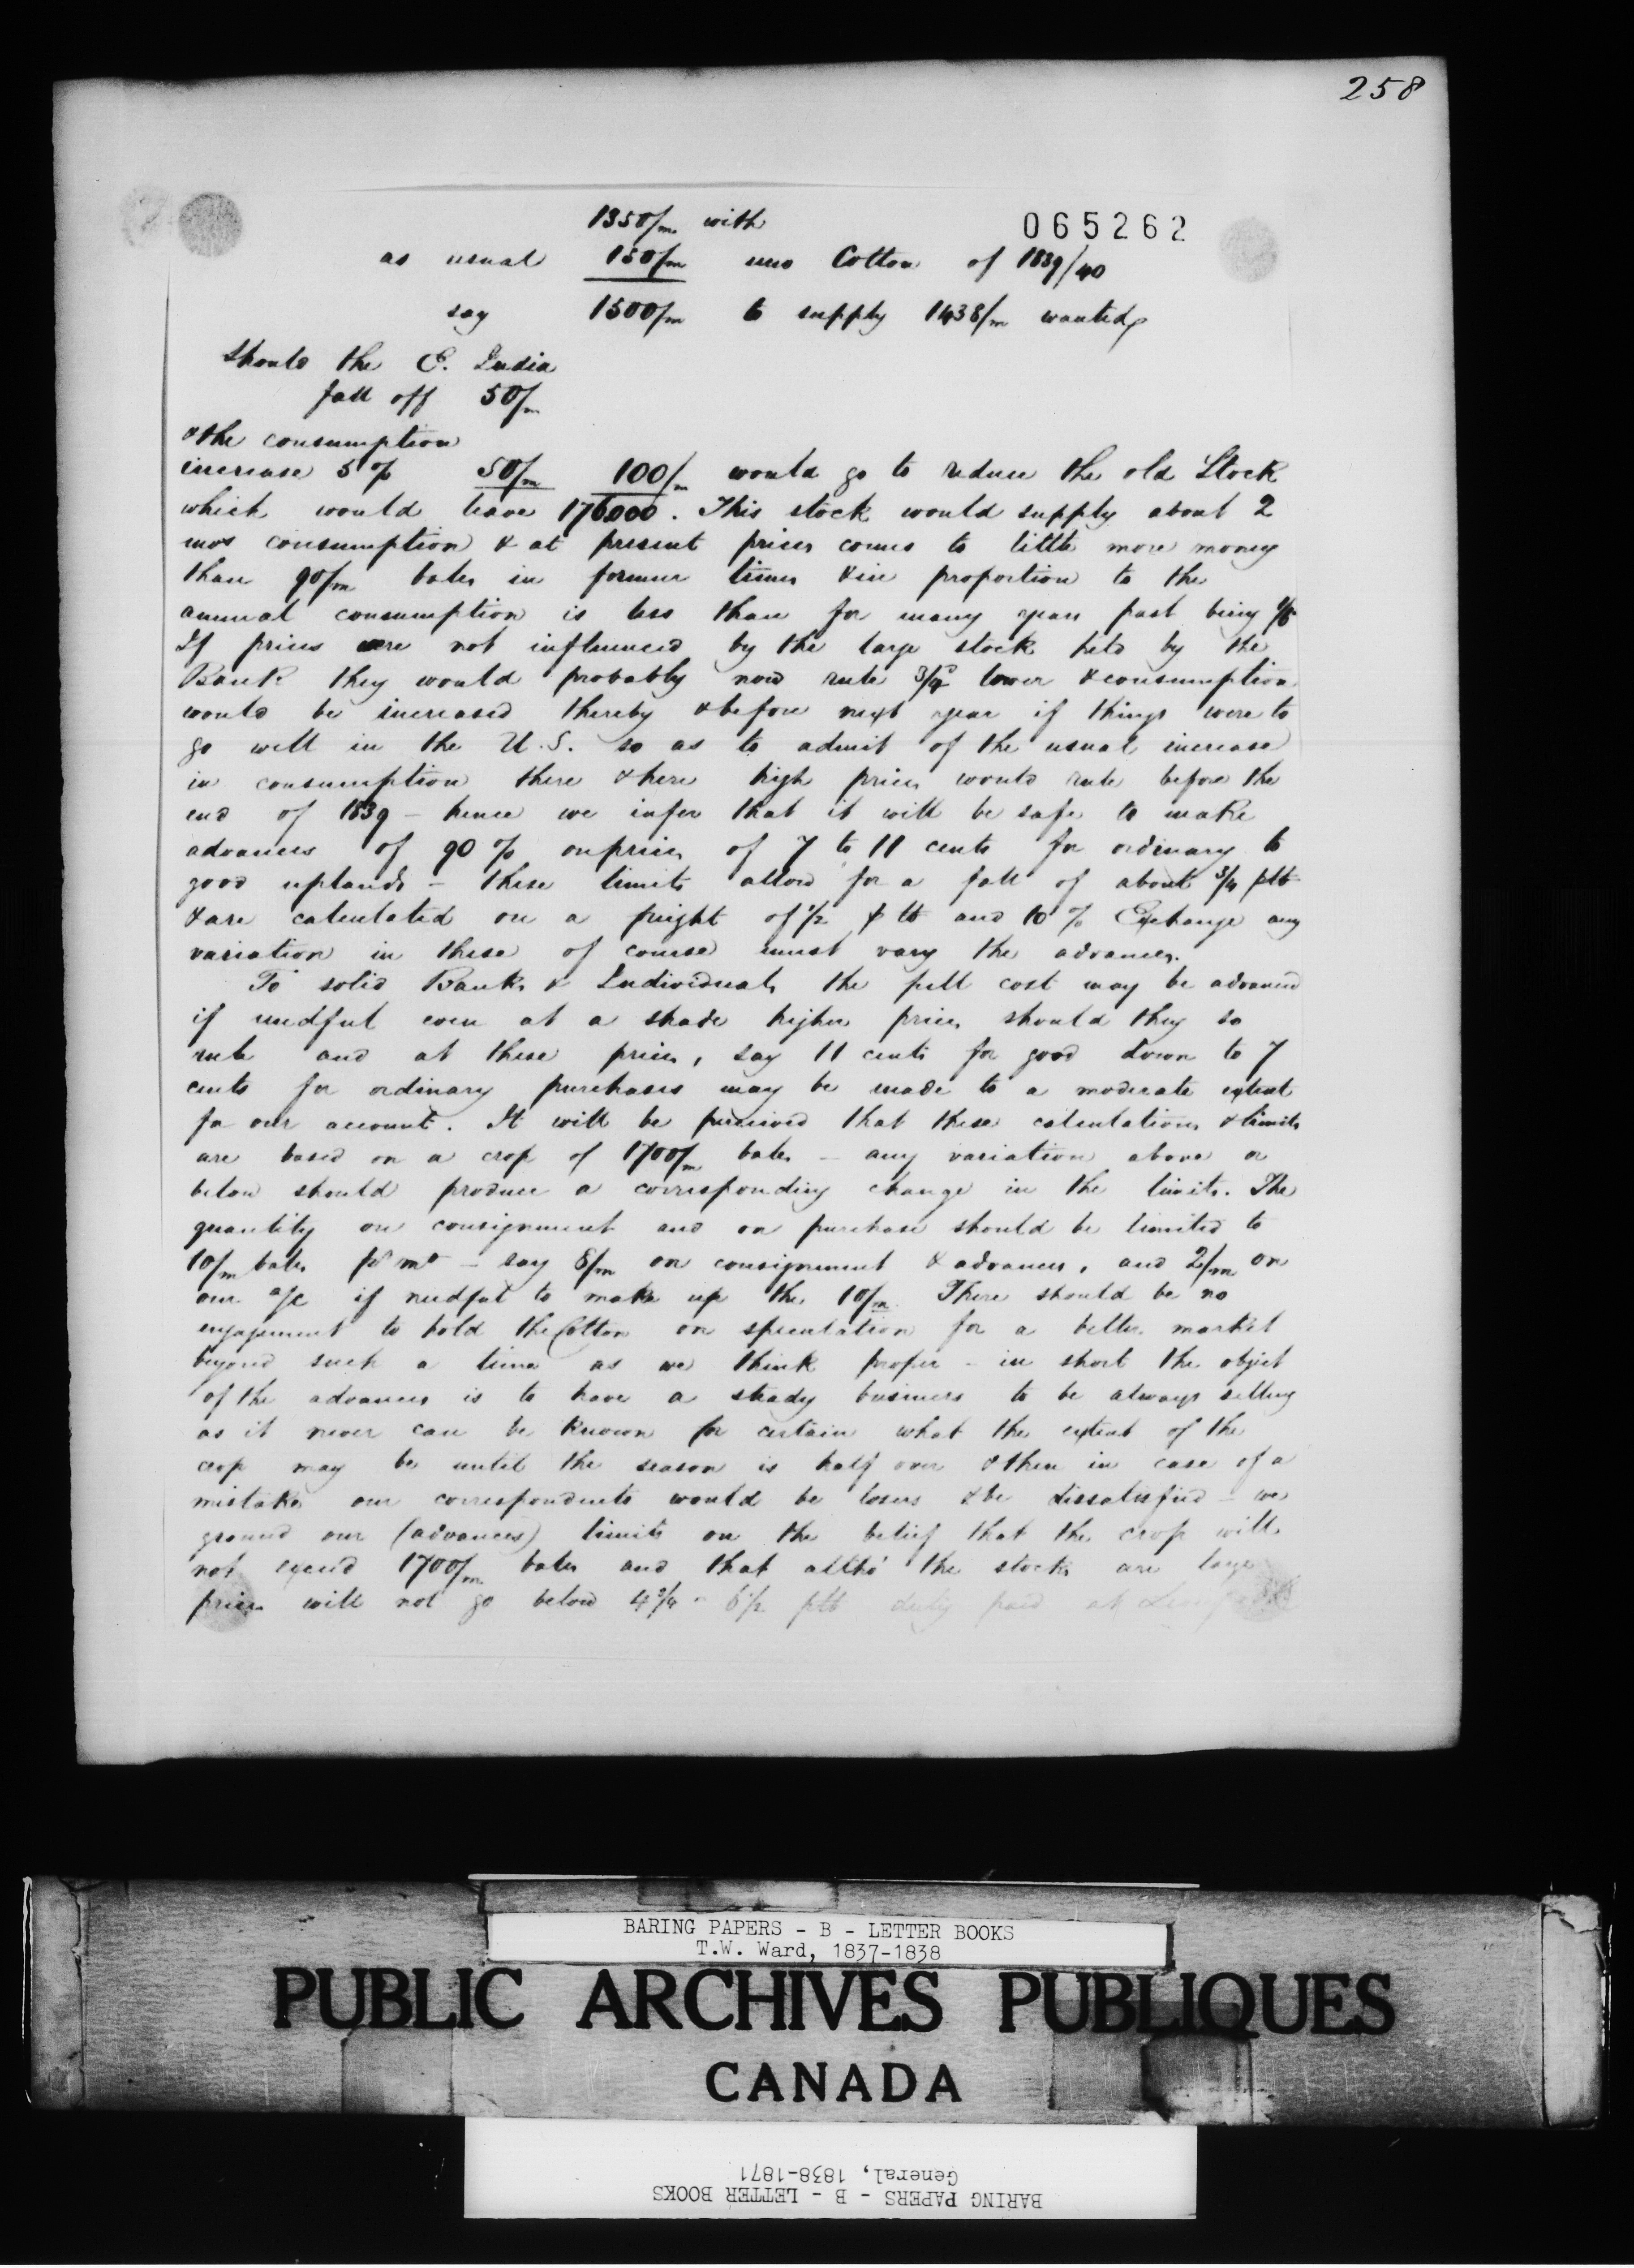 258
065262
1350/m with
as usual 150/m new Cotton of 1839/40
say 1500/m to supply 1438/m wanted
Should the E. India
fall off 50/m
& the consumption
increase 5 % 50/m 100/m would go to reduce the old Stock
which would leave 176000. This stock would supply about 2
mos consumption & at present prices comes to little more money
than 90/m bales in former times & in proportion to the
annual consumption is less than for many years past being 1/6
If prices were not influenced by the large stock held by the
Bank they would probably now rule 3/4d lower & consumption
would be increased thereby & before next year if things were to
go well in the U.S. so as to admit of the usual increase
in consumption there & here high prices would rule before the
end of 1839 - hence we infer that it will be safe to make
advances of 90 % on prices of 7 to 11 cents for ordinary to
good uplands - these limits allow for a fall of about 3/4 p lb
& are calculated on a freight of 1/2 p lb and 10 % Exchange any
variation in these of course must vary the advances.
To solid Banks & Individuals the full cost may be advanced
if needful even at a shade higher prices should they so
rule and at these prices, say 11 cents for good down to 7
cents for ordinary purchases may be made to a moderate extent
for our account. It will be perceived that these calculations & limits
are based on a crop of 1700/m bales - any variation above or
below should produce a corresponding change in the limits. The
quantity on consignment and on purchase should be limited to
10/m bales pr mo - say 8/m on consignment & advances, and 2/m on
our a/c if needful to make up the 10/m. There should be no
engagement to hold the Cotton on speculation for a better market
beyond such a time as we think proper - in short the object
of the advances is to have a steady business to be always selling
as it never can be known for certain what the extent of the
crop may be until the season is half over & then in case of a
mistake our correspondents would be losers & be dissatisfied - we
ground our (advances) limits on the belief that the crop will
not exceed 1700/m bales and that altho' the stocks are large
prices will not go below 4 3/4 6 1/2 p lb duty paid at
BARING PAPERS - B - LETTER BOOKS
T.W. Ward, 1837-1838
PUBLIC ARCHIVES PUBLIQUES
CANADA
BARING PAPERS - B - LETTER BOOKS
General, 1838-1871